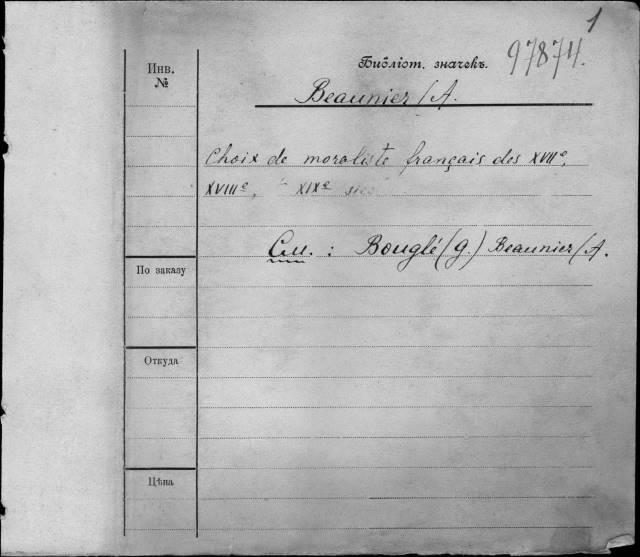 1
Библіот. значекъ.
97874.
Инв.
№
Beaunier/A.
Choix de moraliste français des XVIIe,
XVIIIe, XIXe
См. : Bouglé (g.) Beaunier/A.
По заказу
Откуда
Цѣна